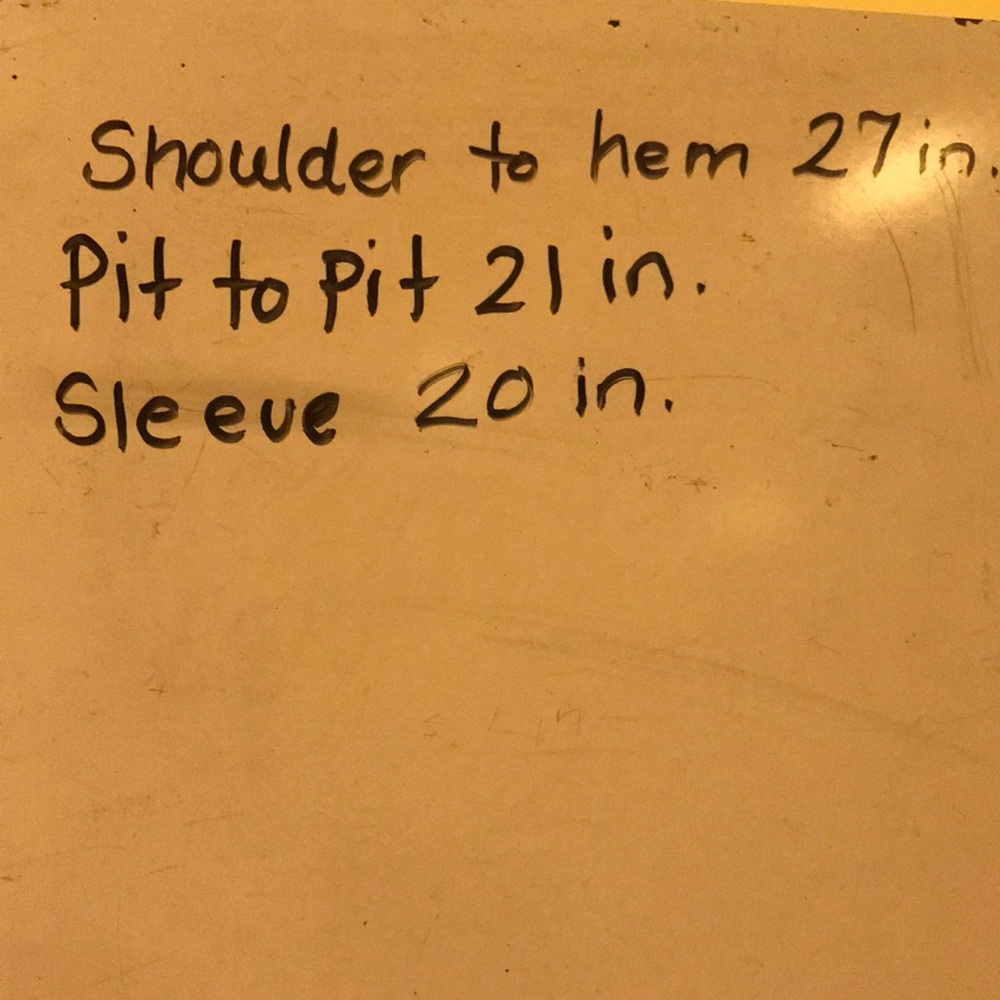 Shoulder to hem 27 in.
Pit to pit 21 in.
Sleeve 20 in.